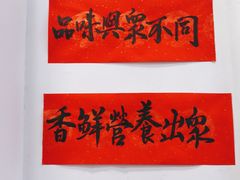 品味與眾不同
香鮮營養出眾